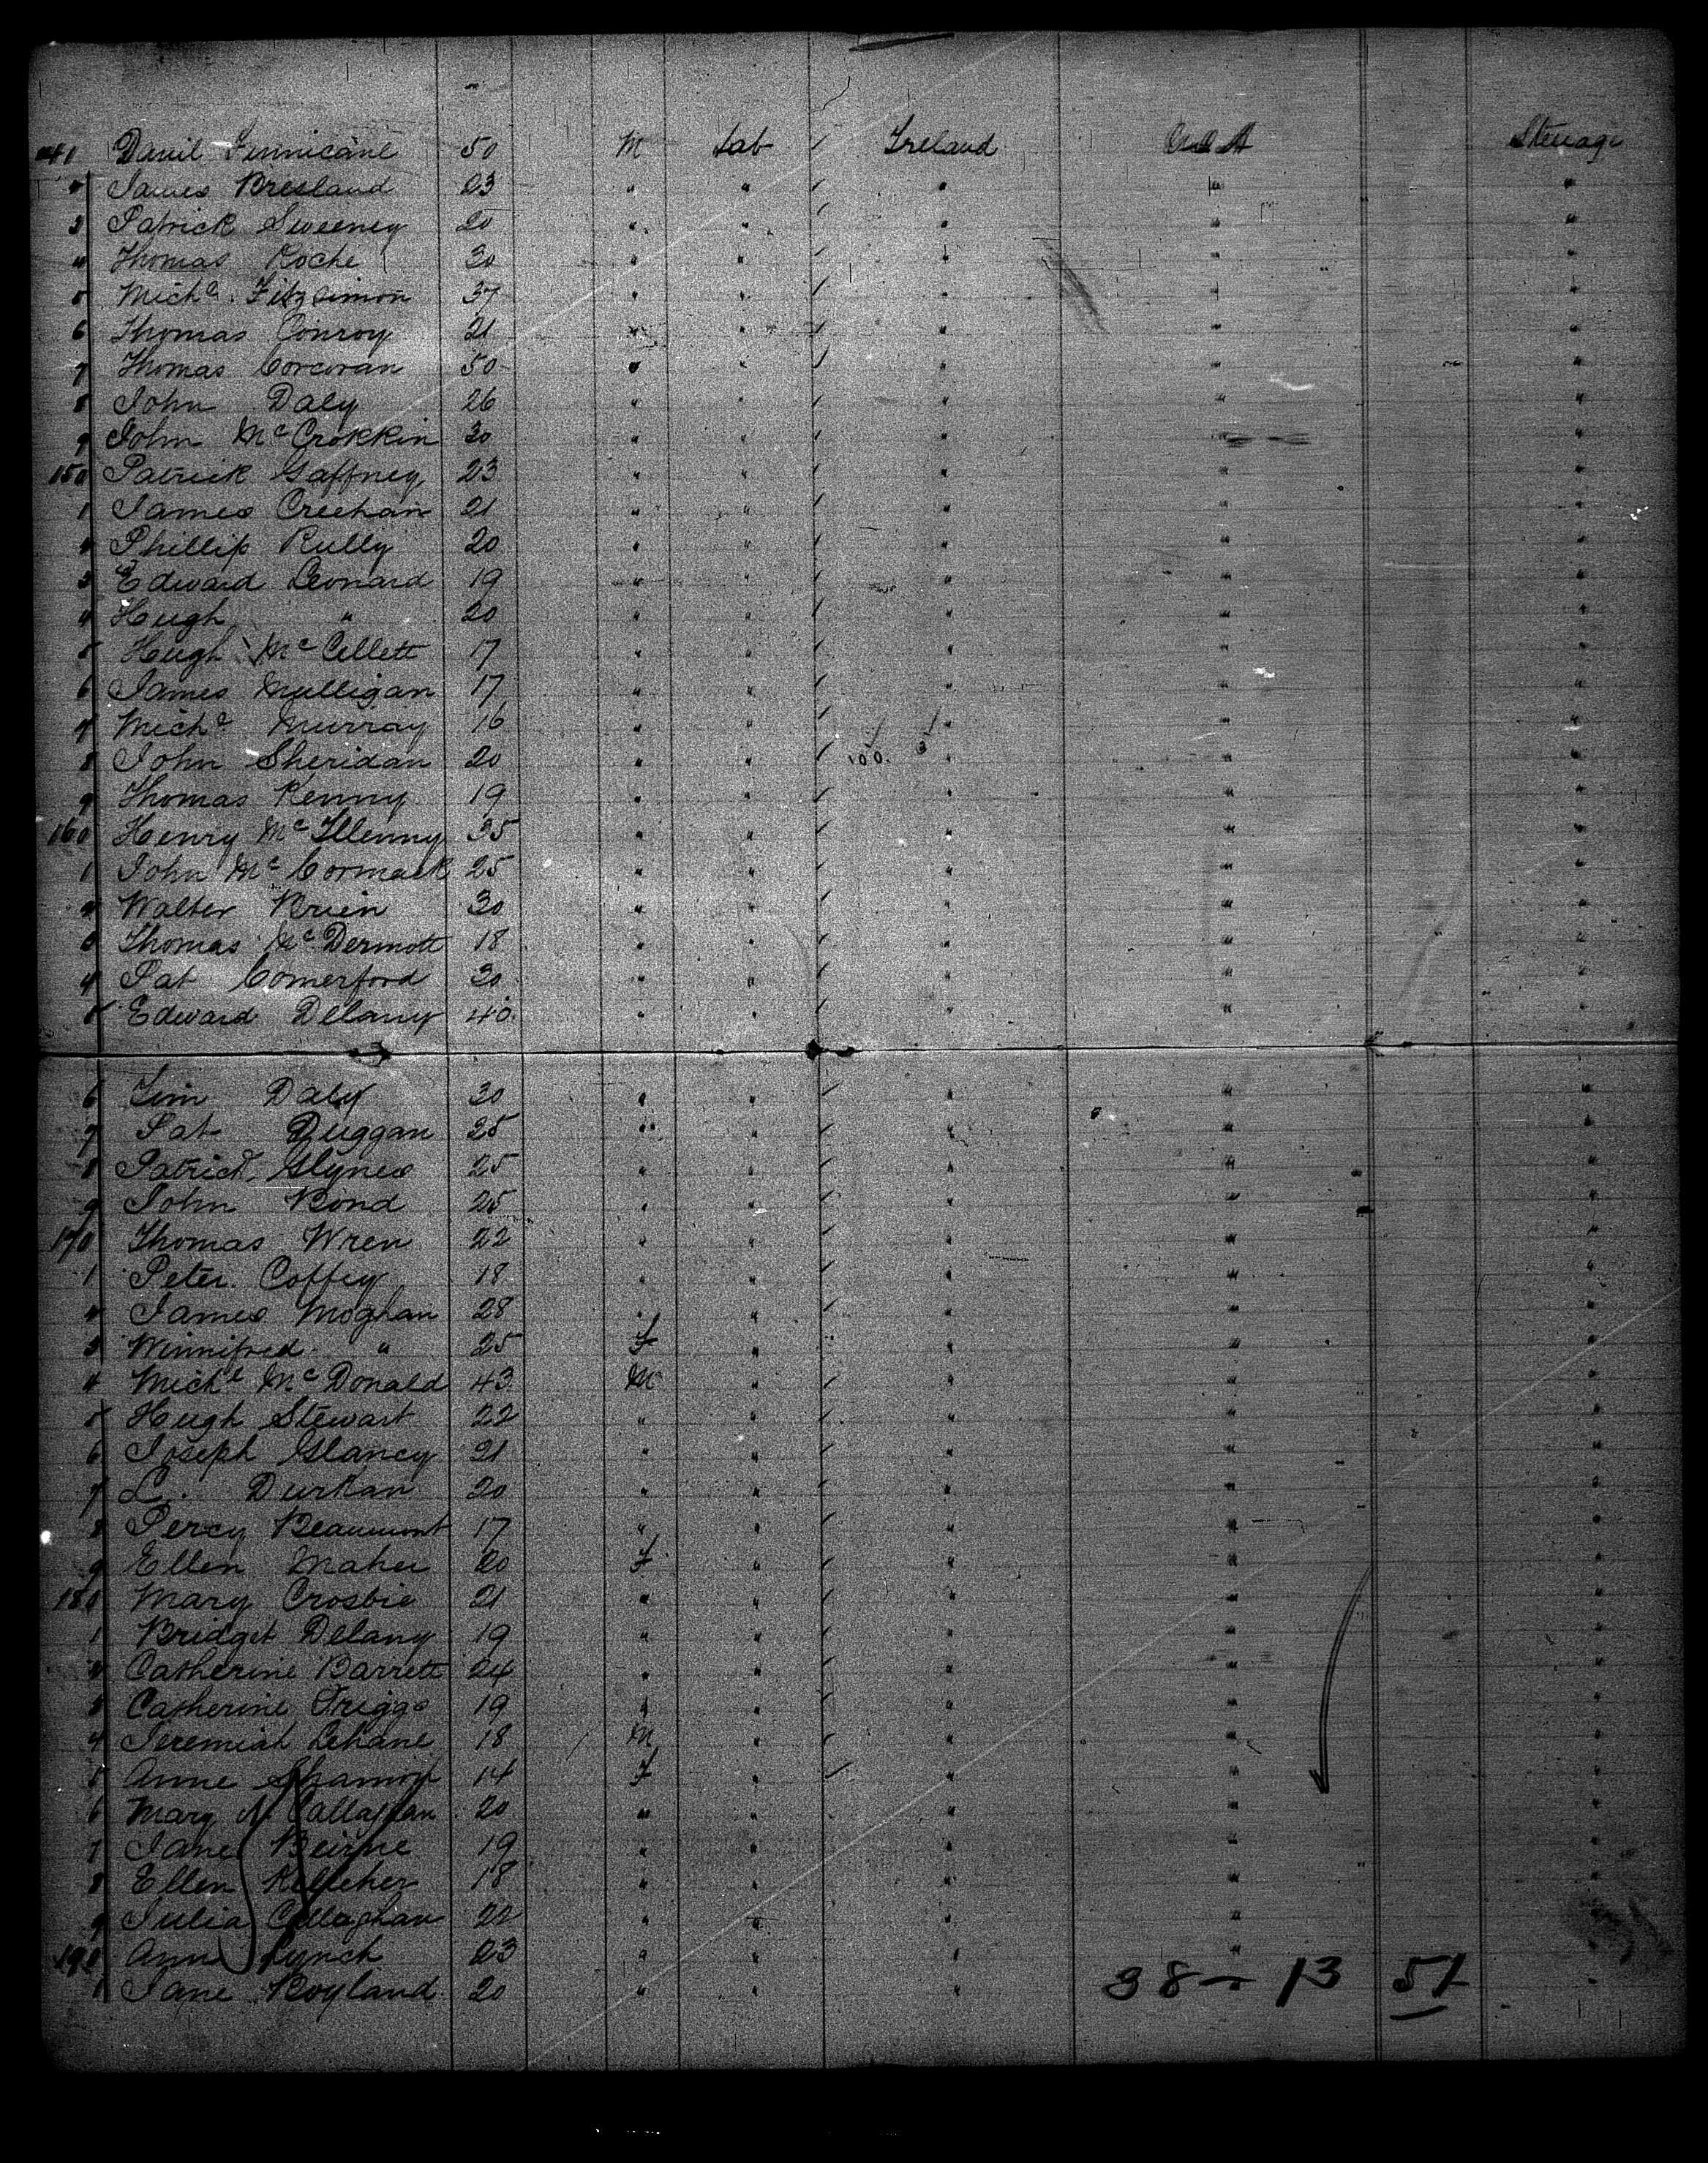 41 Daniel Finnicane 50 M Lab Ireland U S A Steerage
2 James Bresland 23 " " " " "
3 Patrick Sweeney 20 " " " " "
4 Thomas Roche 30 " " " " "
5 Michl. Fitzsimon 37 " " " " "
6 Thomas Conroy 21 " " " " "
7 Thomas Corcoran 50 " " " " "
8 John Daly 26 " " " " "
9 John McCrokkin 30 " " " " "
150 Patrick Gaffney 23 " " " " "
1 James Creehan 21 " " " " "
2 Phillip Rully 20 " " " " "
3 Edward Leonard 19 " " " " "
4 Hugh " 20 " " " " "
5 Hugh McCellett 17 " " " " "
6 James Mulligan 17 " " " " "
7 Michl Murray 16 " " " " "
8 John Sheridan 20 " " " "
9 Thomas Kenny 19 " " " " "
160 Henry McIllenny 35 " " " " "
1 John McCormack 25 " " " " "
2 Walter Brien 30 " " " " "
3 Thomas McDermott 18 " " " " "
4 Pat Comerford 30 " " " " "
5 Edward Delany 40 " " " " "
6 Tim Daly 30 " " " " "
7 Pat Duggan 25 " " " " "
8 Patrick Glynes 25 " " " " "
9 John Bond 25 " " " " "
170 Thomas Wren 22 " " " " "
1 Peter Coffey 18 " " " " "
2 James Moghan 28 " " " " "
3 Winnifred " 25 F " " " "
4 Michl McDonald 43 M " " " "
5 Hugh Stewart 22 " " " " "
6 Joseph Glancy 21 " " " " "
7 L. Durkan 20 " " " " "
8 Percy Beaumont 17 " " " " "
9 Ellen Maher 20 F " " " "
180 Mary Crosbie 21 " " " " "
1 Bridget Delany 19 " " " " "
2 Catherine Barrett 24 " " " " "
3 Catherine Triggs 19 " " " " "
4 Jeremiah Lehane 18 M " " " "
5 Anne 14 F " " " "
6 Mary Callaghan 20 " " " " "
7 Jane Beirne 19 " " " " "
8 Ellen Kelleher 18 " " " " "
9 Julia Callaghan 22 " " " " "
190 Ann Lynch 23 " " " " "
1 Jane Boyland 20 " " " 38 - 13 51